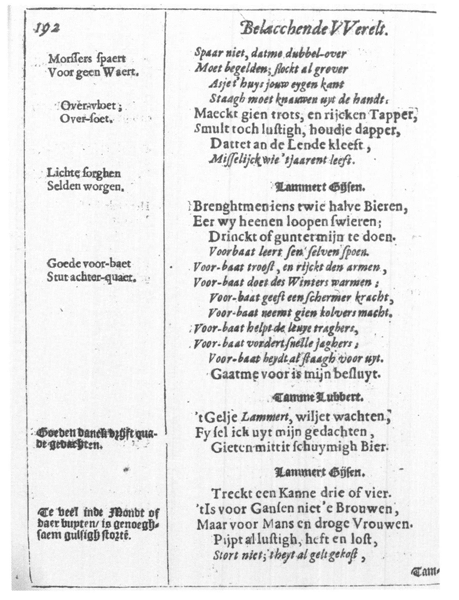 192
Belacchende VVerelt.
Morssers spaert
Voor geen Waert.
Over-vloet,
Over-soet.
Lichte sorghen
Selden worgen.
Goede voor-baet
Stut achter-quaet.
Goeden danck drijft qua-
de gedachten.
Te veel inde Mondt of
daer buyten/ is genoegh-
saem gulsigh stozte.
Spaar niet, datme dubbel-over
Moet begelden; slockt al grover
Asje t'huys jouw eygen kant
Staagh moet knauwen uyt de handt:
Maeckt gien trots, en rijcken Tapper,
Smult toch lustigh, houdje dapper,
Dattet an de Lende kleeft,
Misselijck wie 'tjaarent leeft.
Lammert Gijsen.
Brenghtmeniens twie halve Bieren,
Eer wy heenen loopen swieren;
Drinckt of guntermijn te doen.
Voorbaat leert sen' selven spoen.
Voor-baat troost, en rijckt den armen,
Voor-baat doet des Winters warmen;
Voor-baat geeft een schermer kracht,
Voor-baat neemt gien kolvers macht.
Voor-baat helpt de leuye traghers,
Voor-baat vordert snelle jaghers;
Voor-baat heydt al staagh voor uyt.
Gaatme voor is mijn besluyt.
Tamme Lubbert.
't Gelje Lammert, wiljet wachten,
Fy sel ick uyt mijn gedachten,
Gieten mittit schuymigh Bier.
Lammert Gijsen.
Treckt een Kanne drie of vier.
'tIs voor Gansen niet 'e Brouwen,
Maar voor Mans en droge Vrouwen.
Pijpt al lustigh, heft en lost,
Stort niet; 'theyt al gelt gekost,
Tam-